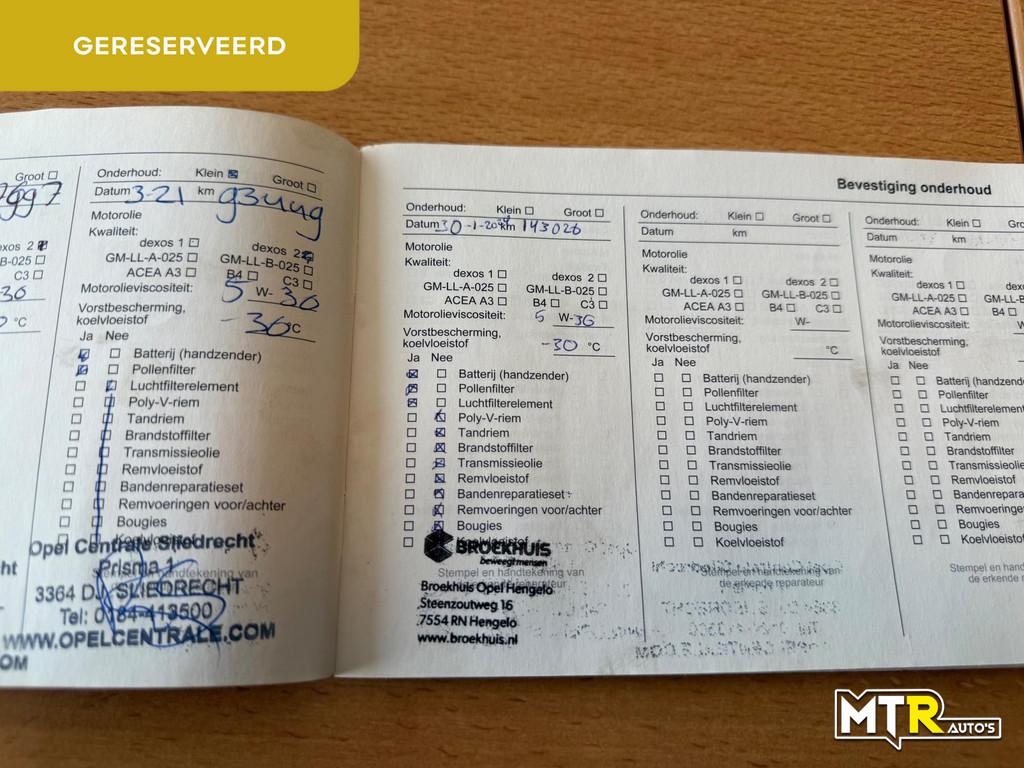 GERESERVEERD
Groot
dexos 2
B-025
C3
°C
Onderhoud: Klein Groot
Datum 3-21 km 93449
Motorolie
Kwaliteit:
dexos 1 dexos 2
GM-LL-A-025 GM-LL-B-025
ACEA A3 B4 C3
Motorolieviscositeit: 5 W- 30
Vorstbescherming,
koelvloeistof -36 °C
Ja Nee
Batterij (handzender)
Pollenfilter
Luchtfilterelement
Poly-V-riem
Tandriem
Brandstoffilter
Transmissieolie
Remvloeistof
Bandenreparatieset
Remvoeringen voor/achter
Bougies
Koelvloeistof
Opel Centrale Sliedrecht
Prisma 1
3364 DJ SLIEDRECHT
Tel: 0184-413500
WWW.OPELCENTRALE.COM
OM
Bevestiging onderhoud
Onderhoud: Klein Groot
Datum 30-1-2024 km 143026
Motorolie
Kwaliteit:
dexos 1 dexos 2
GM-LL-A-025 GM-LL-B-025
ACEA A3 B4 C3
Motorolieviscositeit: 5 W-30
Vorstbescherming,
koelvloeistof -30 °C
Ja Nee
Batterij (handzender)
Pollenfilter
Luchtfilterelement
Poly-V-riem
Tandriem
Brandstoffilter
Transmissieolie
Remvloeistof
Bandenreparatieset
Remvoeringen voor/achter
Bougies
Koelvloeistof
BROEKHUIS
beweegt mensen
Stempel en handtekening van
de erkende reparateur
Broekhuis Opel Hengelo
Steenzoutweg 16
7554 RN Hengelo
www.broekhuis.nl
Onderhoud: Klein Groot
Datum km
Motorolie
Kwaliteit:
dexos 1 dexos 2
GM-LL-A-025 GM-LL-B-025
ACEA A3 B4 C3
Motorolieviscositeit: W-
Vorstbescherming,
koelvloeistof °C
Ja Nee
Batterij (handzender)
Pollenfilter
Luchtfilterelement
Poly-V-riem
Tandriem
Brandstoffilter
Transmissieolie
Remvloeistof
Bandenreparatieset
Remvoeringen voor/achter
Bougies
Koelvloeistof
Stempel en handtekening van
de erkende reparateur
Onderhoud: Klein
Datum km
Motorolie
Kwaliteit:
dexos 1
GM-LL-A-025 GM-LL-B
ACEA A3 B4
Motorolieviscositeit: W-
Vorstbescherming,
koelvloeistof
Ja Nee
Batterij (handzende
Pollenfilter
Luchtfilterelement
Poly-V-riem
Tandriem
Brandstoffilter
Transmissieolie
Remvloeistof
Bandenrepara
Remvoeringe
Bougies
Koelvloeisto
Stempel en han
de erkende r
MTR AUTO'S